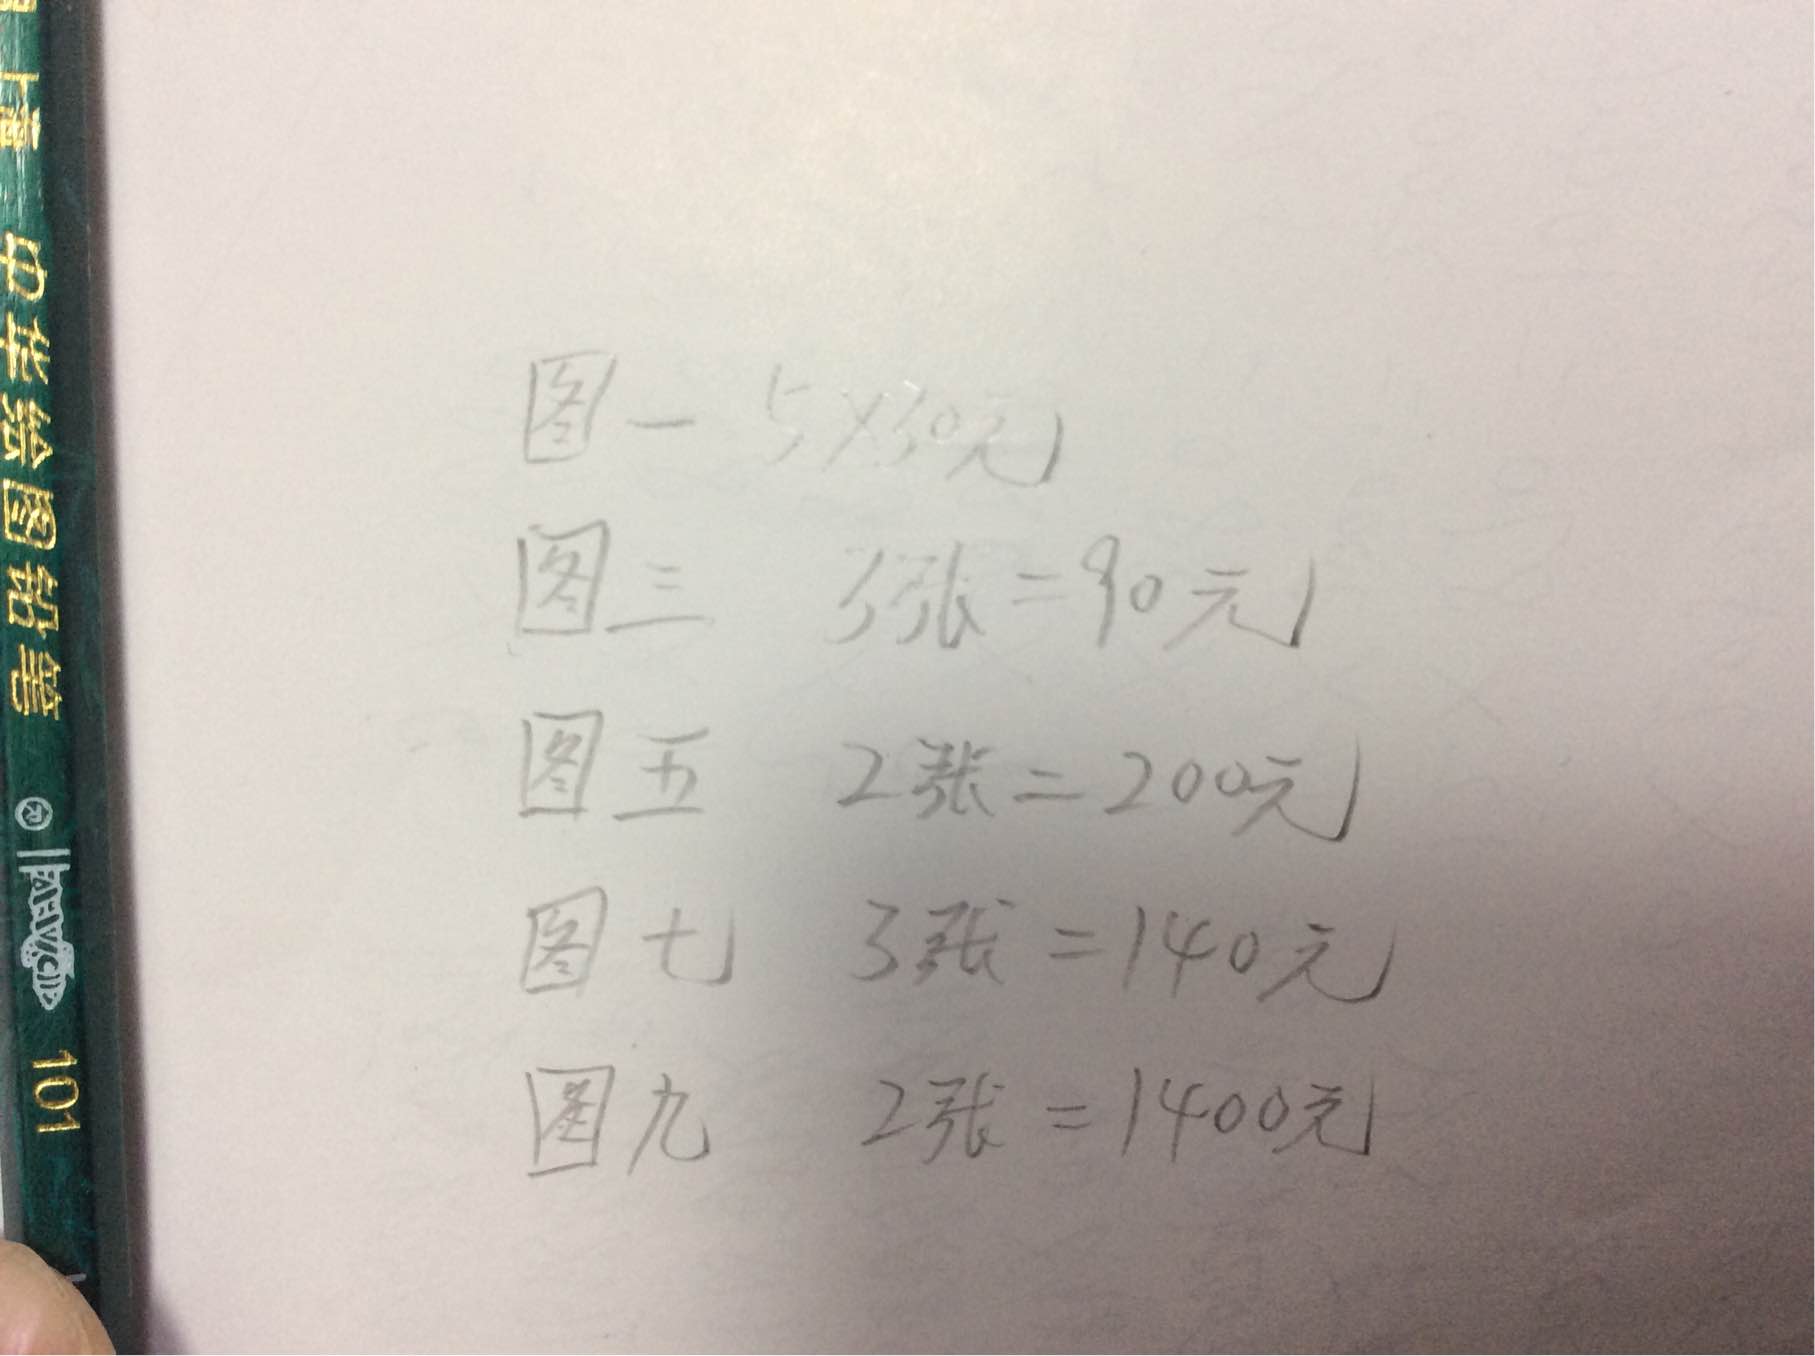 图一 5×30元
图三 3张=90元
图五 2张=200元
图七 3张=140元
图九 2张=1400元
中华绘图铅笔 ® 101